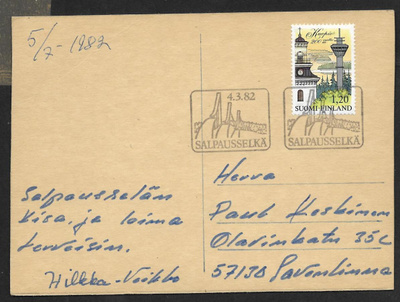 5/7-1982
Kuopio
200 vuotta
1,20
SUOMI FINLAND
4.3.82
SALPAUSSELKÄ
SALPAUSSELKÄ
Salpausselän
kisa, ja loima
terveisin.
Hilkka-Veikko
Herra
Paul Koskinen
Olavinkatu 35C
57130 Savonlinna